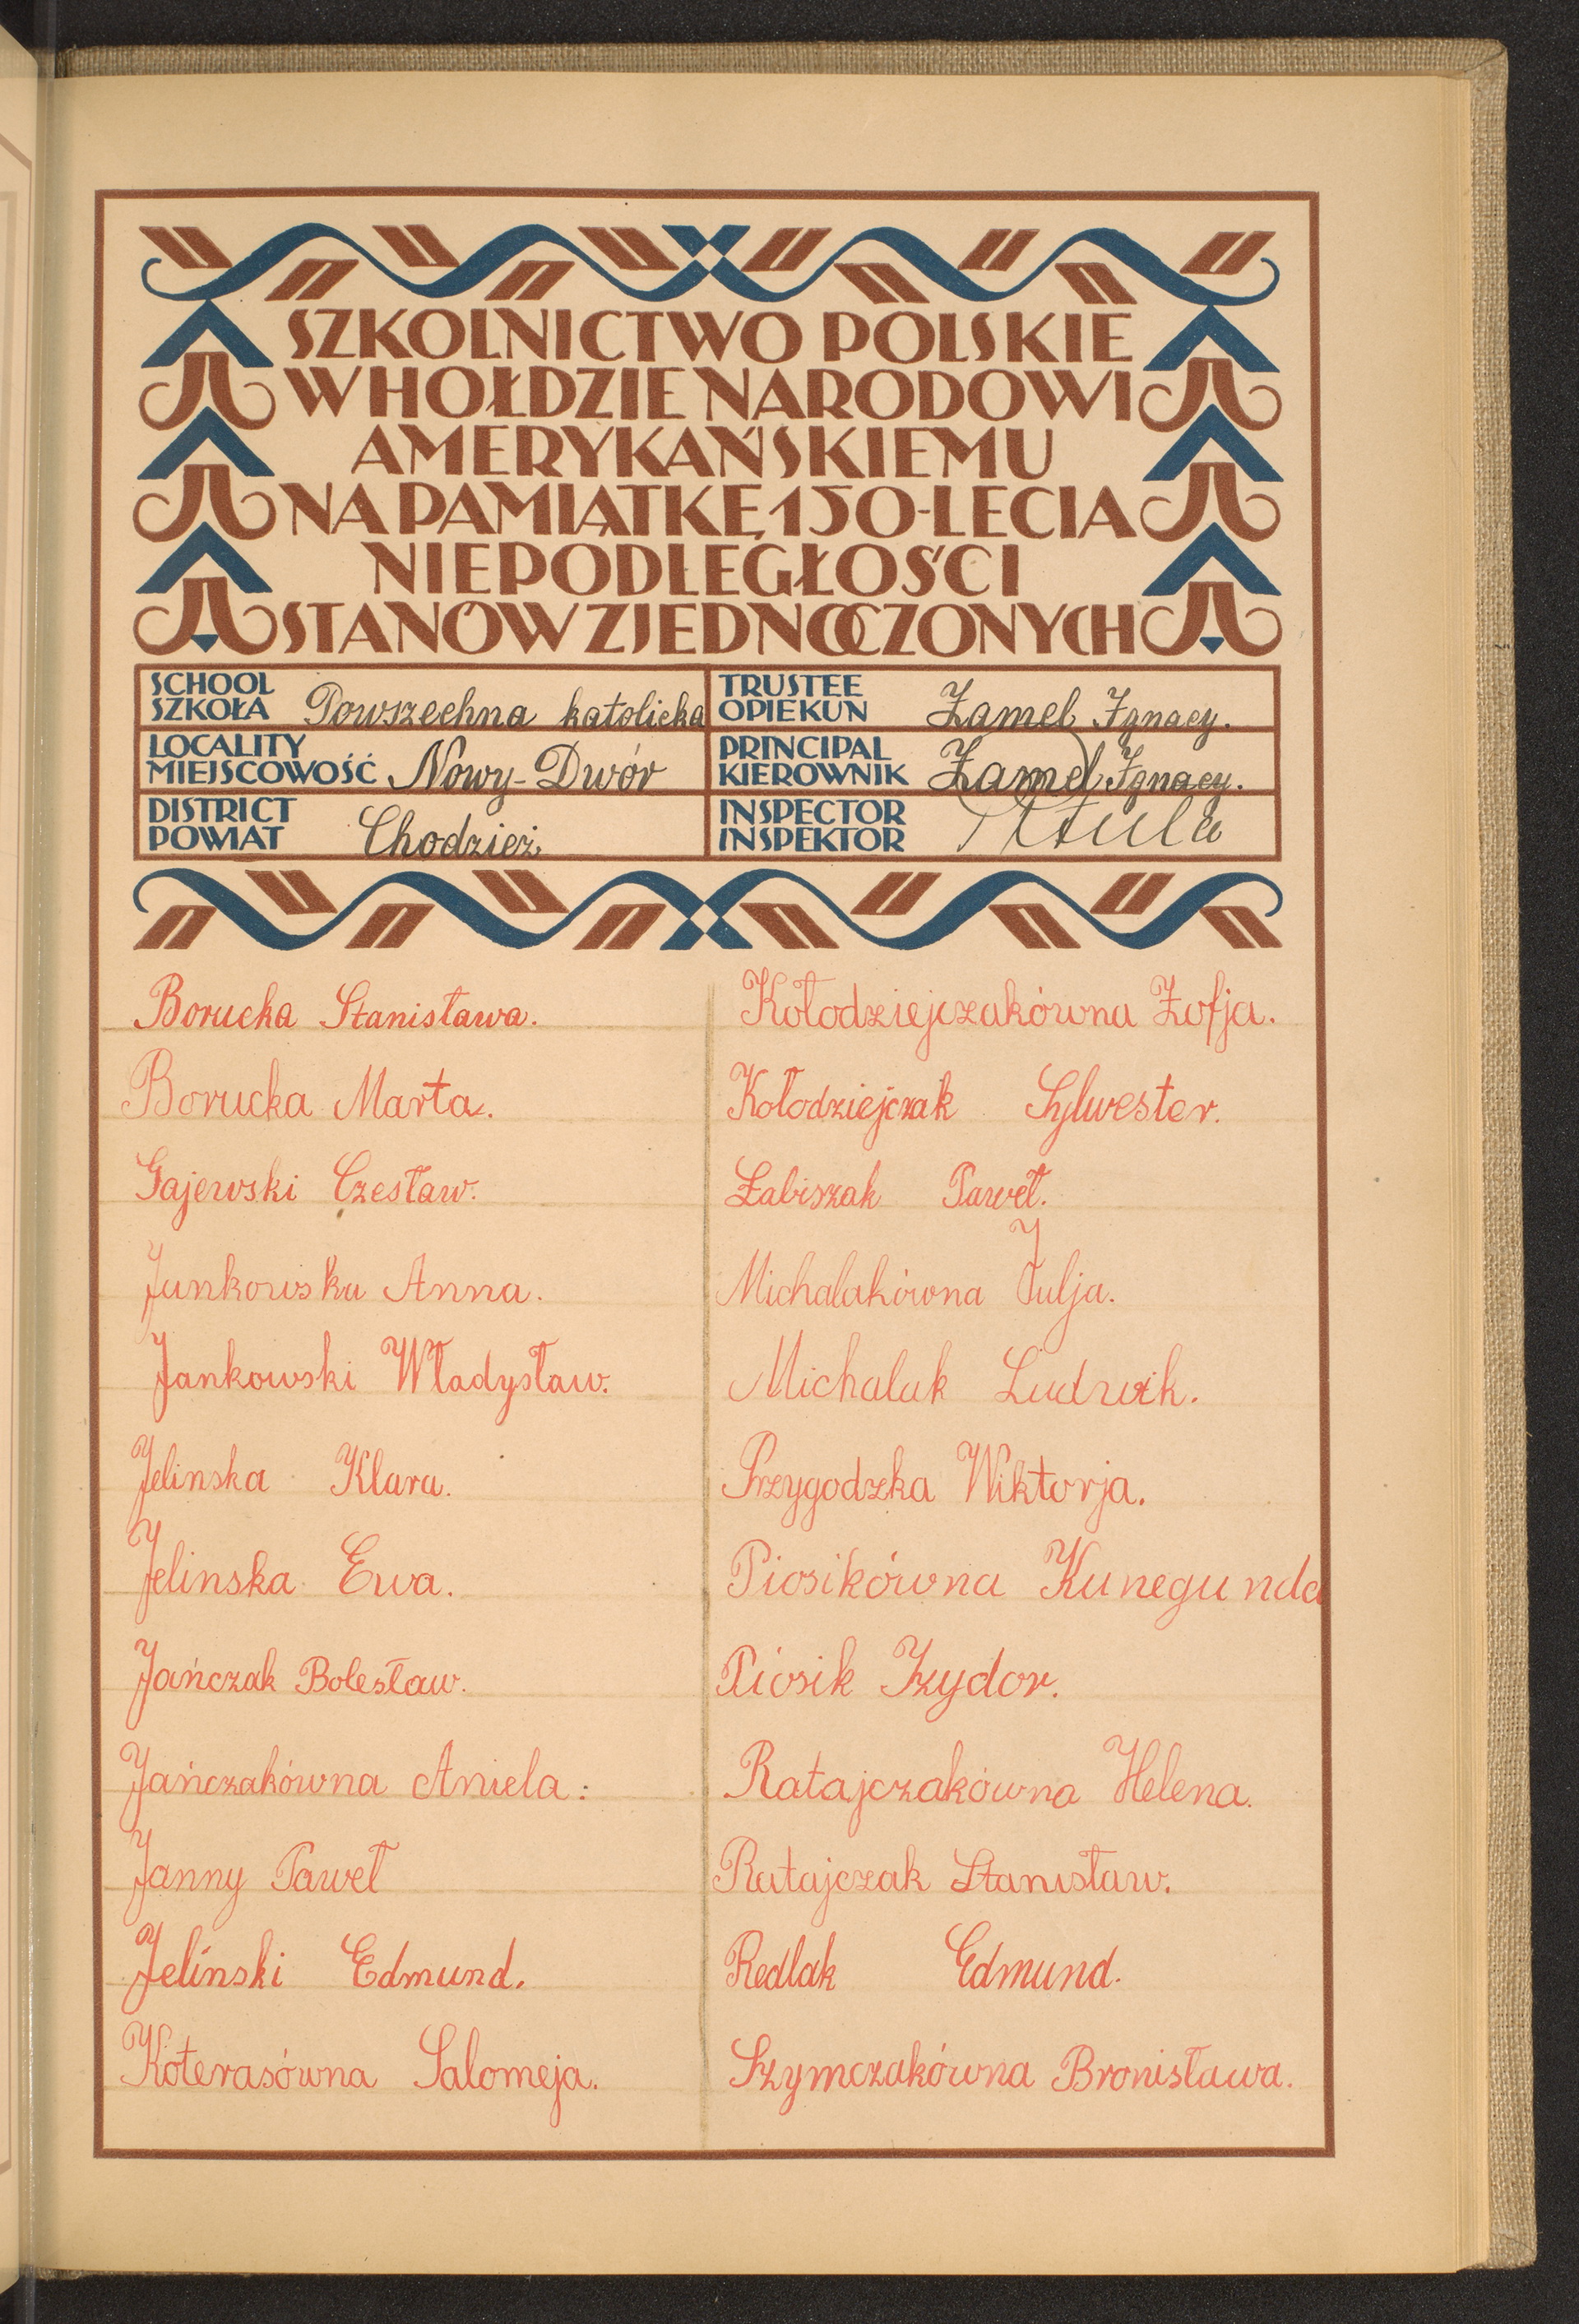 SZKOLNICTWO POLSKIE
W HOŁDZIE NARODOWI
AMERYKAŃSKIEMU
NA PAMIĄTKĘ 150-LECIA
NIEPODLEGŁOŚCI
STANÓW ZJEDNOCZONYCH
SCHOOL
SZKOŁA Powszechna katolicka
TRUSTEE
OPIEKUN Zamel Ignacy.
LOCALITY
MIEJSCOWOŚĆ Nowy-Dwór
PRINCIPAL
KIEROWNIK Zamel Ignacy.
DISTRICT
POWIAT Chodzież
INSPECTOR
INSPEKTOR
Borucka Stanisława.
Borucka Marta.
Gajewski Czesław.
Jankowska Anna.
Jankowski Władysław.
Jelinska Klara.
Jelinska Ewa.
Jańczak Bolesław.
Jańczakówna Aniela.
Janny Paweł
Jelinski Edmund.
Koterasówna Salomeja.
Kołodziejczakówna Zofja.
Kołodziejczak Sylwester.
Łabiszak Paweł.
Michalakówna Julja.
Michalak Ludwik.
Przygodzka Wiktorja.
Piosikówna Kunegunda
Piosik Izydor.
Ratajczakówna Helena.
Ratajczak Stanisław.
Redlak Edmund.
Szymczakówna Bronisława.